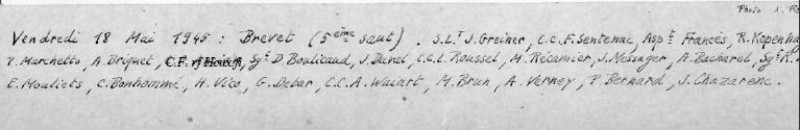 Photo X. Re
Vendredi 18 Mai 1945 : Brevet (5ème saut). S.Lt J. Greiner, C.C. F. Sentenac, Aspt Francès, R. Kopenha
P. Marchetto, A. Briquet, Sgt D. Boulicaud, J. Duret, C.C. L. Roussel, M. Récamier, J. Messager, A. Bacharel, Sgt R.
E. Mouliets, C. Bonhomme, H. Vico, G. Debar, C.C. A. Waiart, M. Brun, A. Verney, P. Bernard, J. Chazarenc.